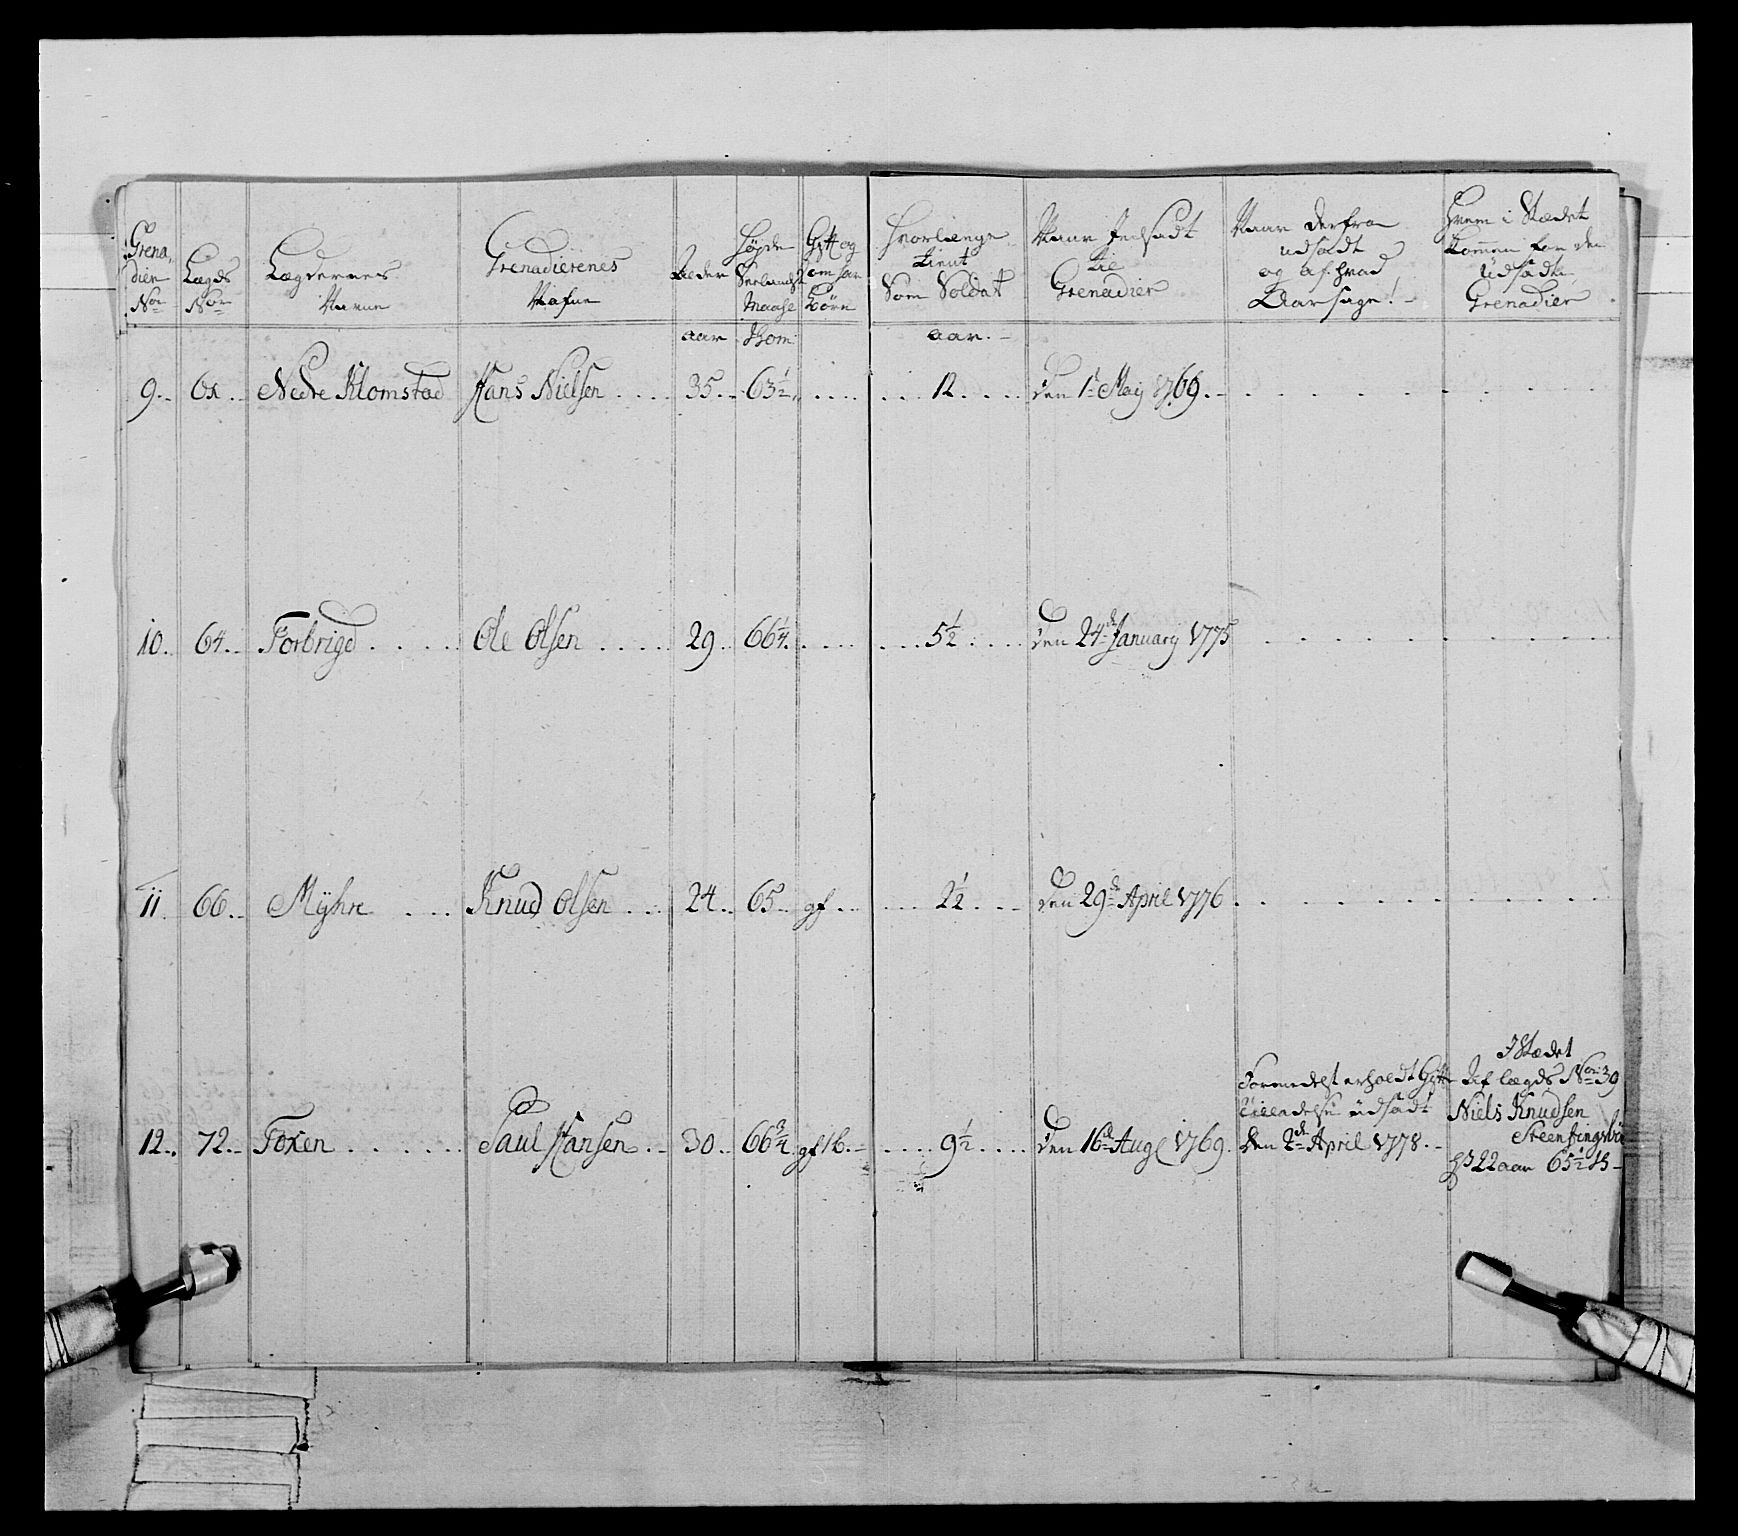 Grenadier Nor
Lægds Nor
Lægdernes Navne
Grenadierenes Nafne
Alder
Høyde Siælandsk Maase
Gift og om har Børn
Hvorlænge tient Som Soldat
Naar Indsadt til Grenadier
Naar derfra udsadt og af hvad Aarsage!
Hvem i Stædet kommen for den Udsadte Grenadier
aar Thom: aar.
9. 61. Nedre Klomstad Hans Nielsen 35. 63½. 12. den 1t Maij 1769.
10. 64. Forbrigd Ole Olsen 29. 66¼. 5½. den 24de January 1775
11. 66. Mÿhre Knud Olsen 24. 65. gf 2½. den 29de April 1776
12. 72. Foxen Paul Hansen 30. 66¾ gf 1b. 9½. den 16de Aug 1769.
Formedelst erholdt
udsadt
den 2de April 1778.
I Stædet
Af lægds Nor 39
Niels Knudsen
22 aar 65½